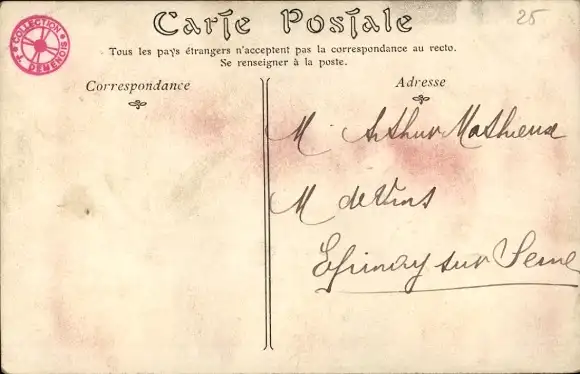 COLLECTION
F. DEMENOIS
Carte Postale
25
Tous les pays étrangers n'acceptent pas la correspondance au recto.
Se renseigner à la poste.
Correspondance
Adresse
M. Arthur Mathieux
M de Vins
Epinay sur Seine